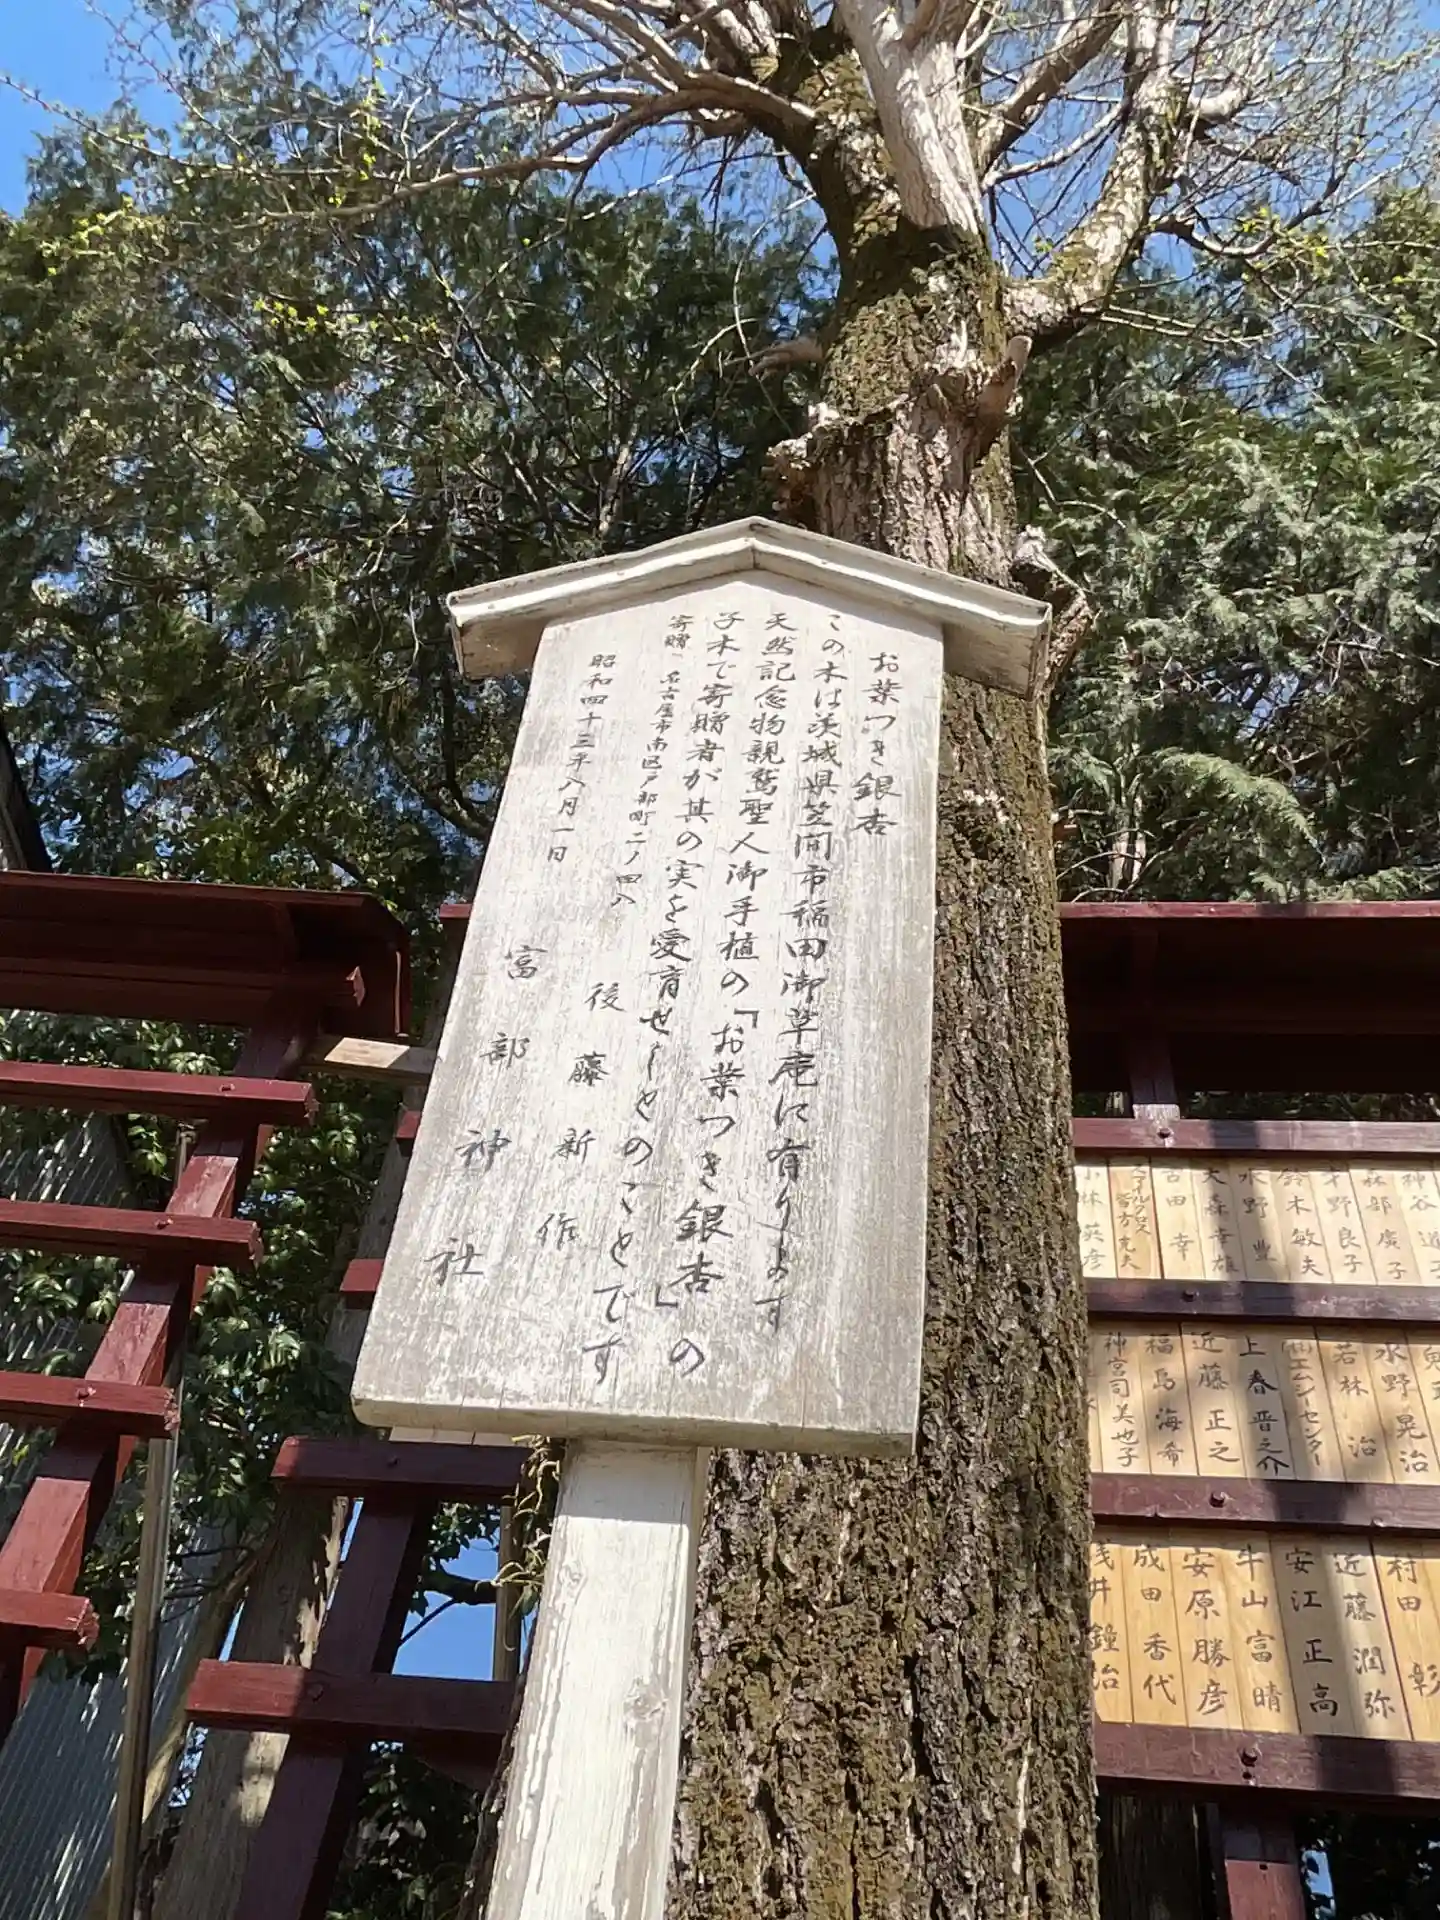 お葉つき銀杏
この木は茨城県笠間市稲田御草庵に有ります
天然記念物親鸞聖人御手植の「お葉つき銀杏」の
子木で寄贈者が其の実を愛育せしとのことです
寄贈 名古屋市南区戸部町二ノ四八
後藤新作
昭和四十三年八月一日
富部神社
神谷道子
森部廣子
才野良子
鈴木敏夫
水野豊
大森幸雄
吉田幸
スマイルクロス
皆方克夫
小林英彦
水野晃治
若林治
㈲エムシーセンター
上春晋之介
近藤正之
福島海希
神宮司美也子
村田彰
近藤潤弥
安江正高
牛山富晴
安原勝彦
成田香代
浅井鐘治